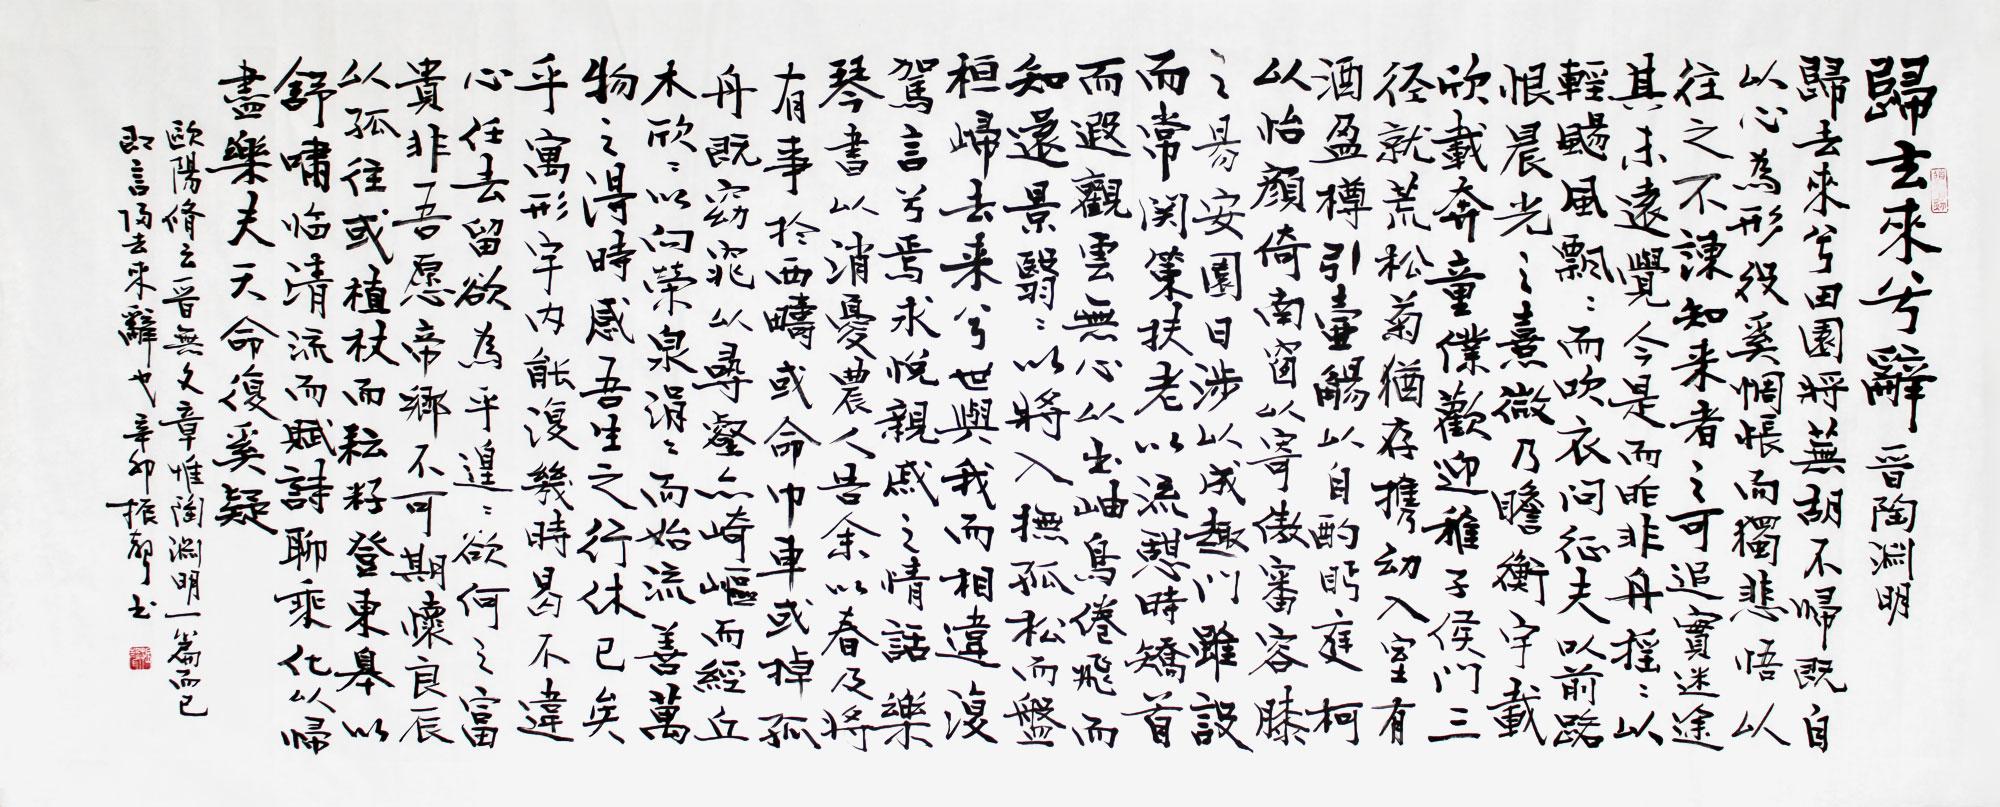 歸去來兮辭 晉陶淵明
歸去來兮田園将蕪胡不歸既自
以心為形役奚惆悵而獨悲悟以
往之不諫知来者之可追實迷途
其未遠覺今是而昨非舟摇〻以
輕颺風飄〻而吹衣问征夫以前路
恨晨光之熹微乃瞻衡宇載
欣載奔童僕歡迎稚子侯门三
径就荒松菊猶存攜幼入室有
酒盈樽引壺觴以自酌眄庭柯
以怡顏倚南窗以寄傲審容膝
之易安園日涉以成趣门雖設
而常関策扶老以流憩時矯首
而遐觀雲無心以出岫鳥倦飛而
知還景翳〻以將入撫孤松而盤
桓歸去来兮世與我而相違復
駕言兮焉求悅親戚之情話樂
琴書以消憂農人告余以春及将
有事於西疇或命巾車或棹孤
舟既窈窕以尋壑亦崎嶇而經丘
木欣〻以向荣泉涓〻而始流善萬
物之得時感吾生之行休已矣
乎寓形宇内能復幾時曷不違
心任去留欲為乎遑〻欲何之富
貴非吾愿帝鄉不可期懷良辰
以孤往或植杖而耘耔登東皋以
舒嘯临清流而賦詩聊乘化以歸
盡樂夫天命復奚疑
歐陽脩云晉無文章惟陶淵明一篇而已
即言歸去来辭也辛卯振聲书